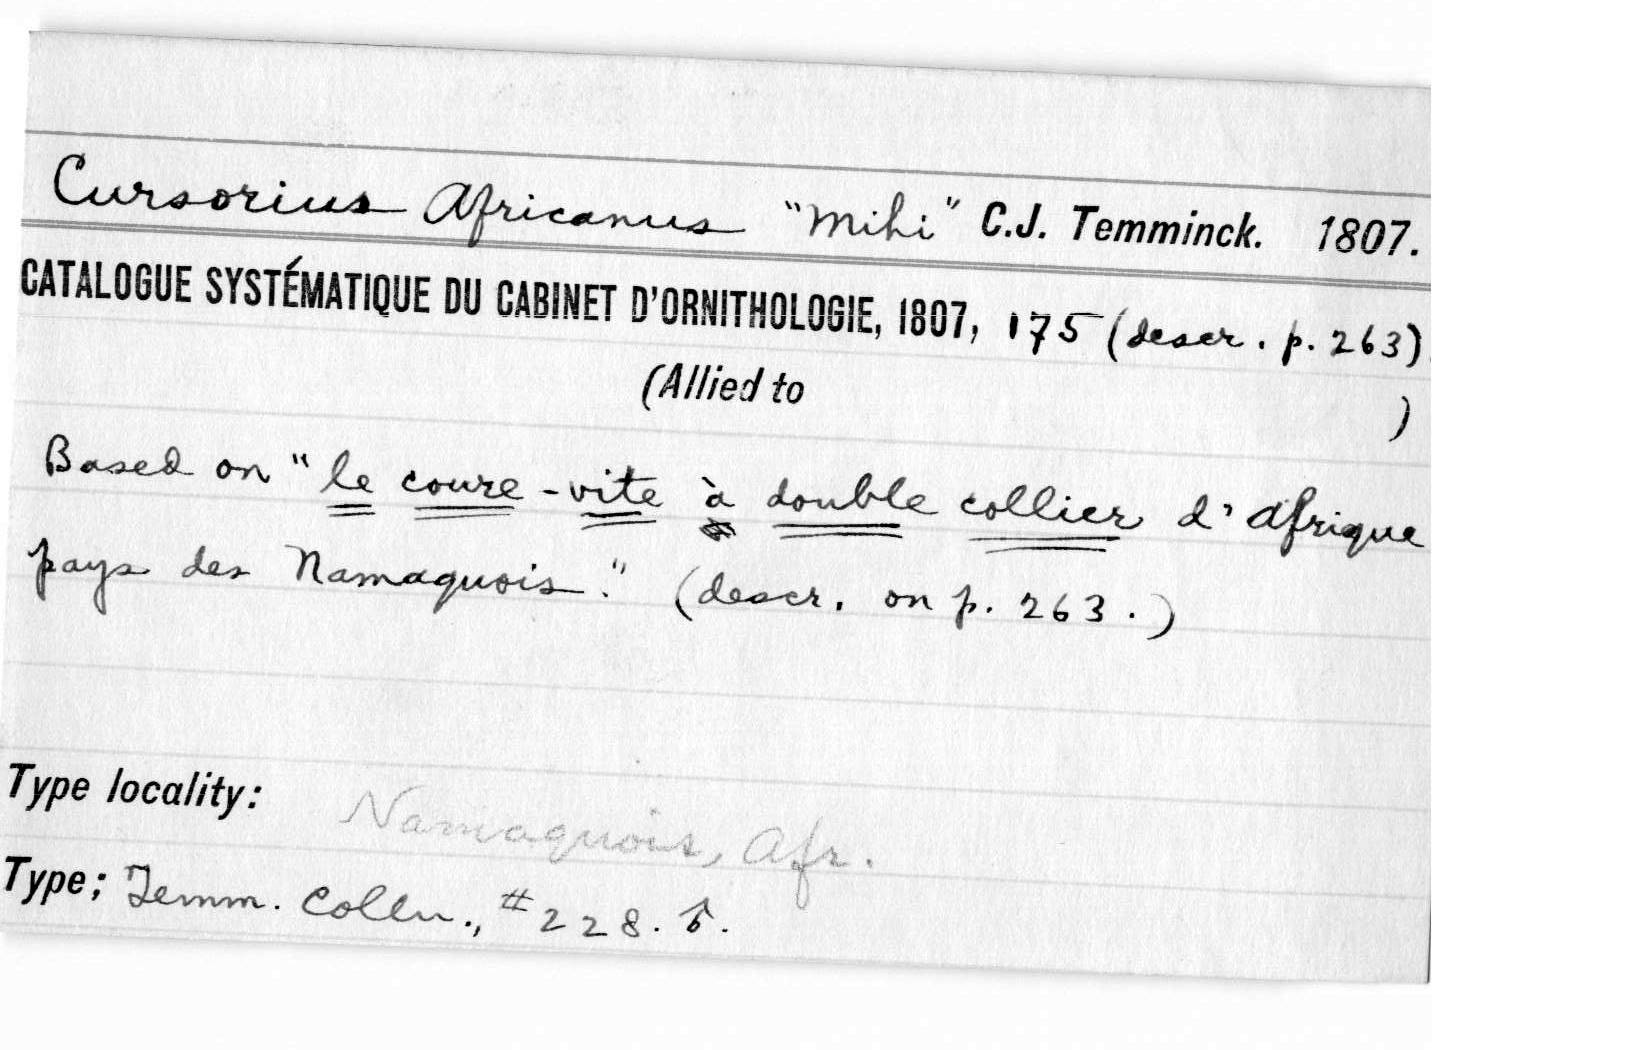 Cursorius Africanus "Mihi" C.J. Temminck. 1807.
CATALOGUE SYSTÉMATIQUE DU CABINET D'ORNITHOLOGIE, 1807, 175 (descr. p. 263)
(Allied to )
Based on "le coure-vite à double collier d'Afrique
pays des Namaquois." (descr. on p. 263.)
Type locality: Namaquois, Afr.
Type; Temm. Colln., #228. ♂.